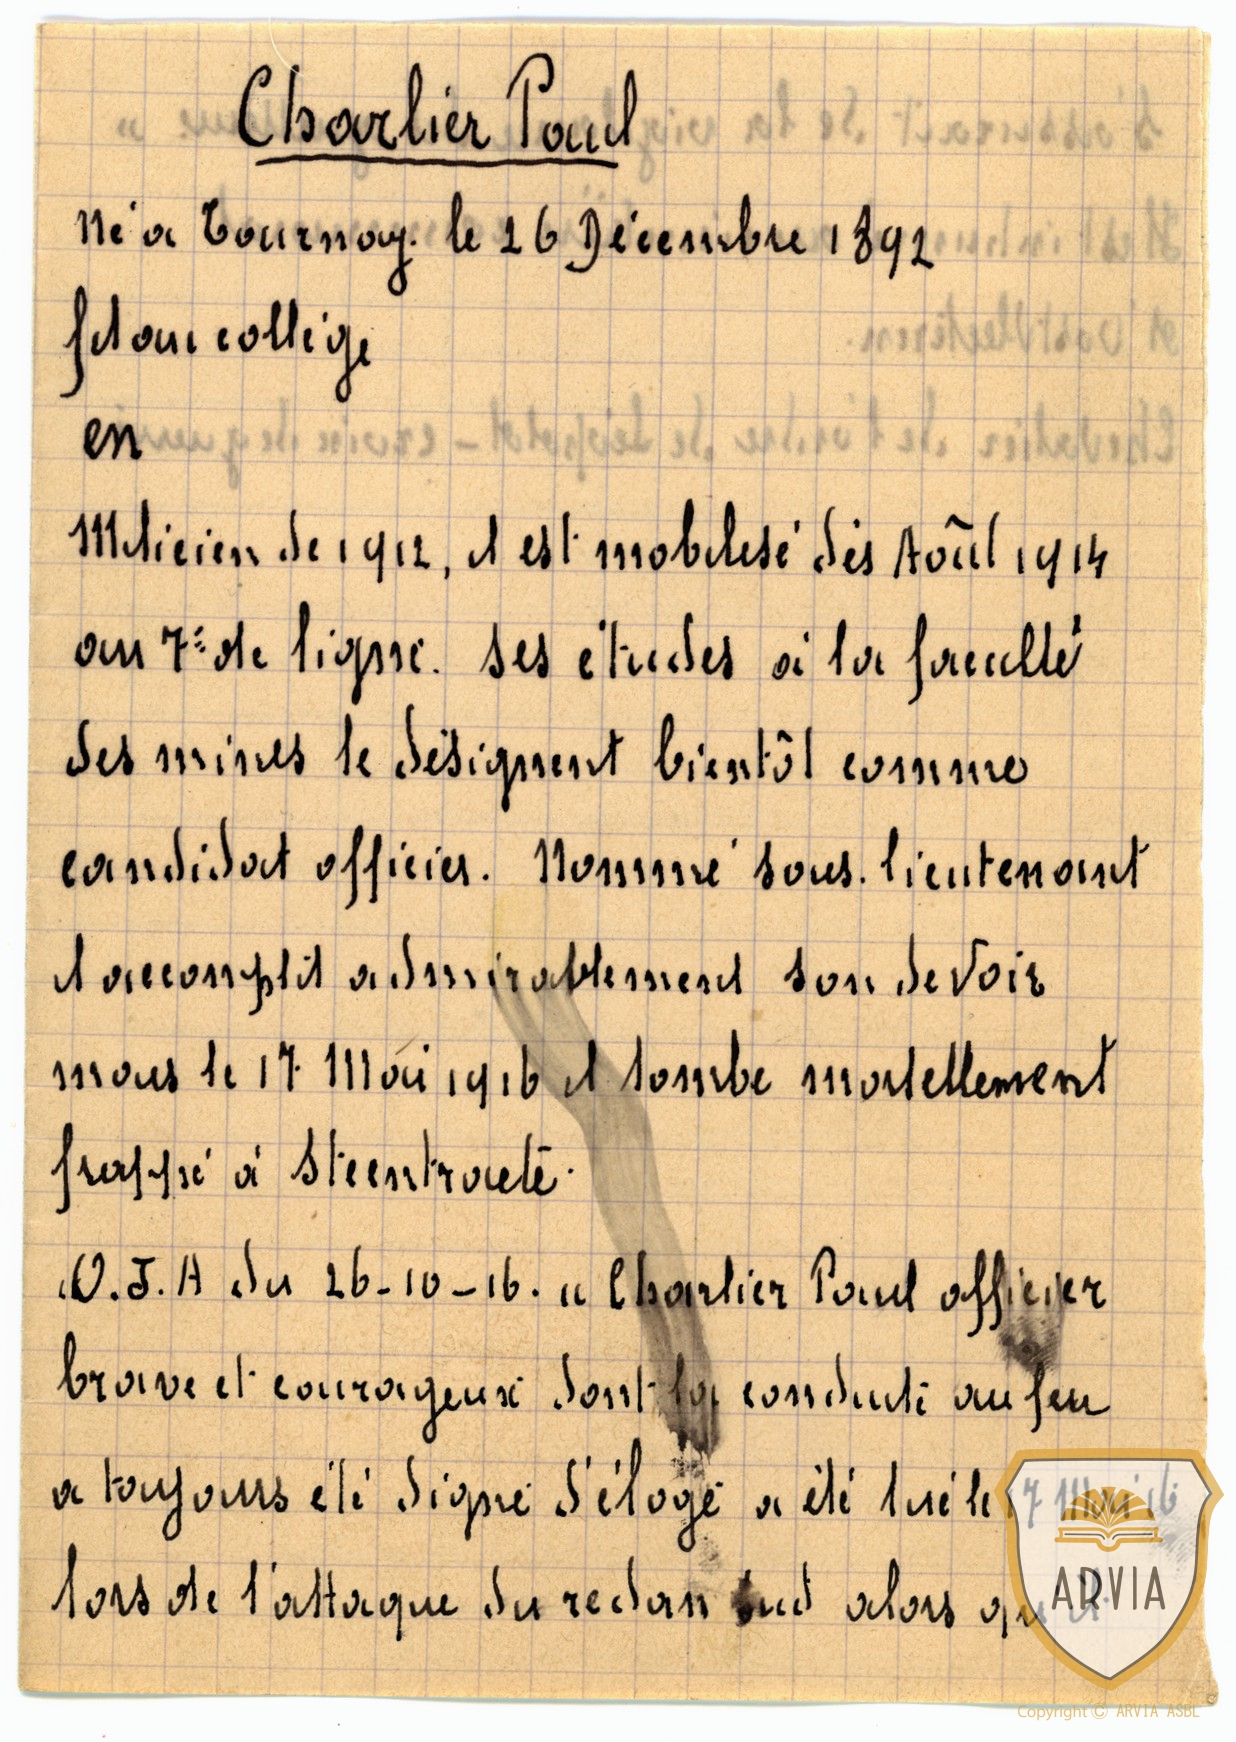 Charlier Paul
Né à Tournay. le 26 Décembre 1892
fit au collège
en
Milicien de 1912, il est mobilisé dès Août 1914
au 7e de ligne. ses études à la faculté
des mines le désignent bientôt comme
candidat officier. Nommé sous. lieutenant
il accomplit admirablement son devoir
mais le 17 Mai 1916 il tombe mortellement
frappé à Steentraete.
O.J.A du 26-10-16. « Charlier Paul officier
brave et courageux dont la conduite au feu
a toujours été digne d'éloge a été tué le 17 Mai 16
lors de l'attaque du redan sud alors qu'il
ARVIA
Copyright © ARVIA ASBL